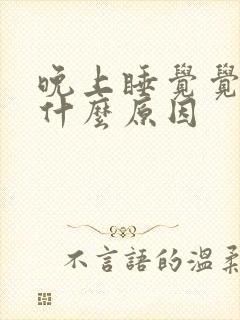 晚上睡覺覺
什麼原因
不言語的溫柔